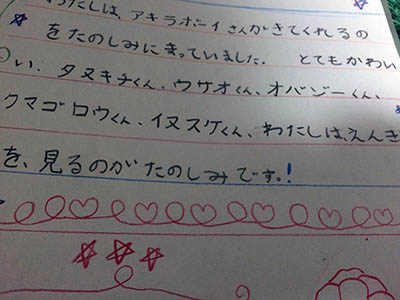 わたしは、アキラボーイさんがきてくれるの
をたのしみにまっていました。 とてもかわい
い、タヌキチくん、ウサオくん、オバゾーくん、
クマゴロウくん、イヌスケくん、わたしは、えんき
を、見るのがたのしみです。!